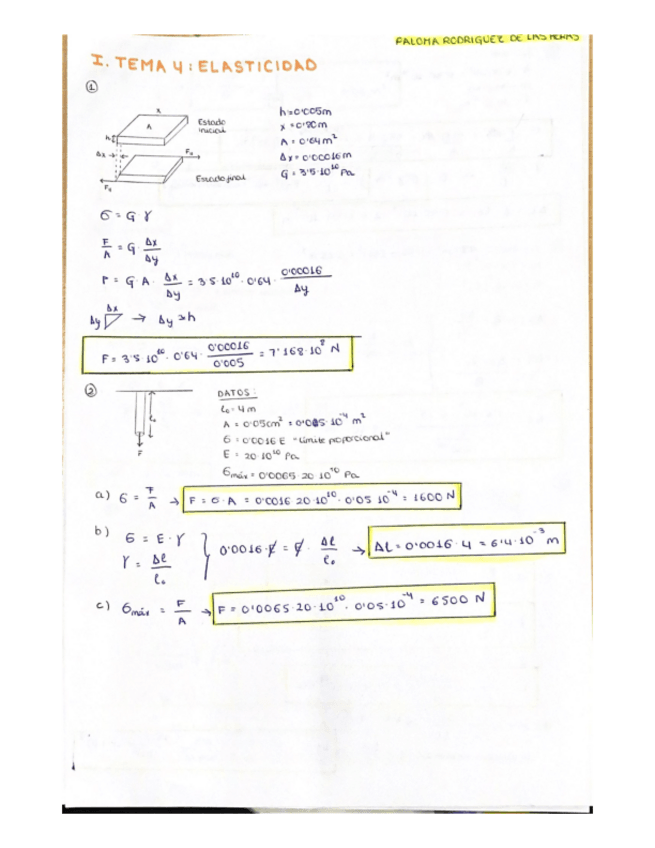 PALOMA RODRIGUEZ DE LAS HERAS
I. TEMA 4: ELASTICIDAD
①
x
A
h
Estado inicial
Δx
F
Estado final
F
h=0'005m
x = 0'80m
A = 0'64m²
Δx = 0'00016m
G = 3'5·10¹⁰ Pa
σ = G γ
F/A = G Δx/Δy
F = G·A· Δx/Δy = 3'5·10¹⁰·0'64· 0'00016/Δy
Δx
Δy → Δy = h
F = 3'5·10¹⁰·0'64· 0'00016/0'005 = 7'168·10⁸ N
②
l₀
F
DATOS:
l₀ = 4m
A = 0'05cm² = 0'05·10⁻⁴ m²
σ = 0'0016 E "límite proporcional"
E = 20·10¹⁰ Pa
σmáx = 0'0065·20·10¹⁰ Pa
a) σ = F/A → F = σ·A = 0'0016·20·10¹⁰·0'05·10⁻⁴ = 1600 N
b) σ = E·γ
γ = Δl/l₀ } 0'0016·E = E· Δl/l₀ → Δl = 0'0016·4 = 6'4·10⁻³ m
c) σmáx = F/A → F = 0'0065·20·10¹⁰·0'05·10⁻⁴ = 6500 N